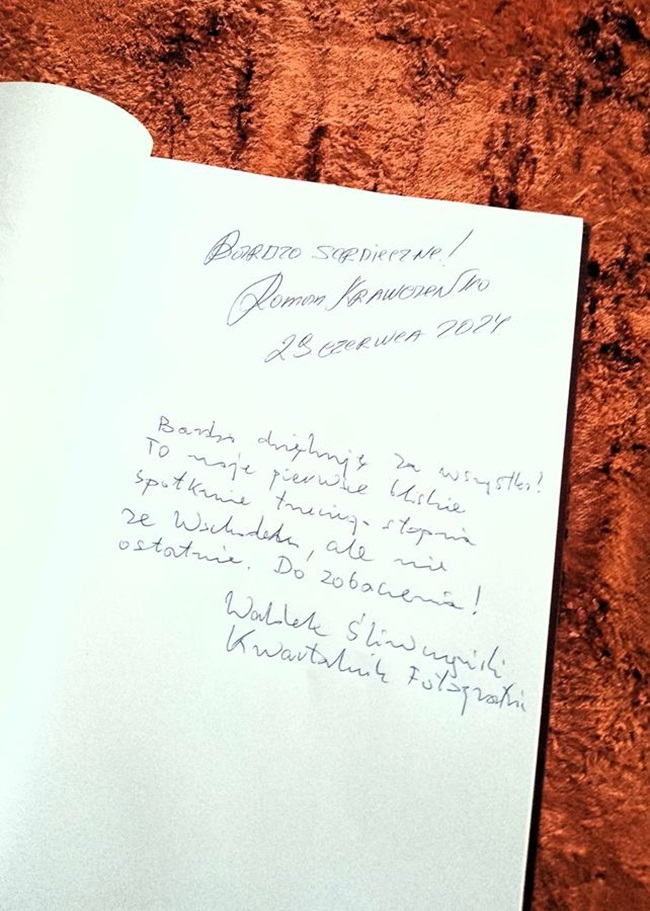 Bardzo serdeczne!
Roman KRAWCZENKO
29 czerwca 2024
Bardzo dziękuję za wszystko!
To moje pierwsze bliskie
spotkanie trzeciego stopnia
ze Wschodem, ale nie
ostatnie. Do zobaczenia!
Waldek Śliwczyński
Kwartalnik Fotografia